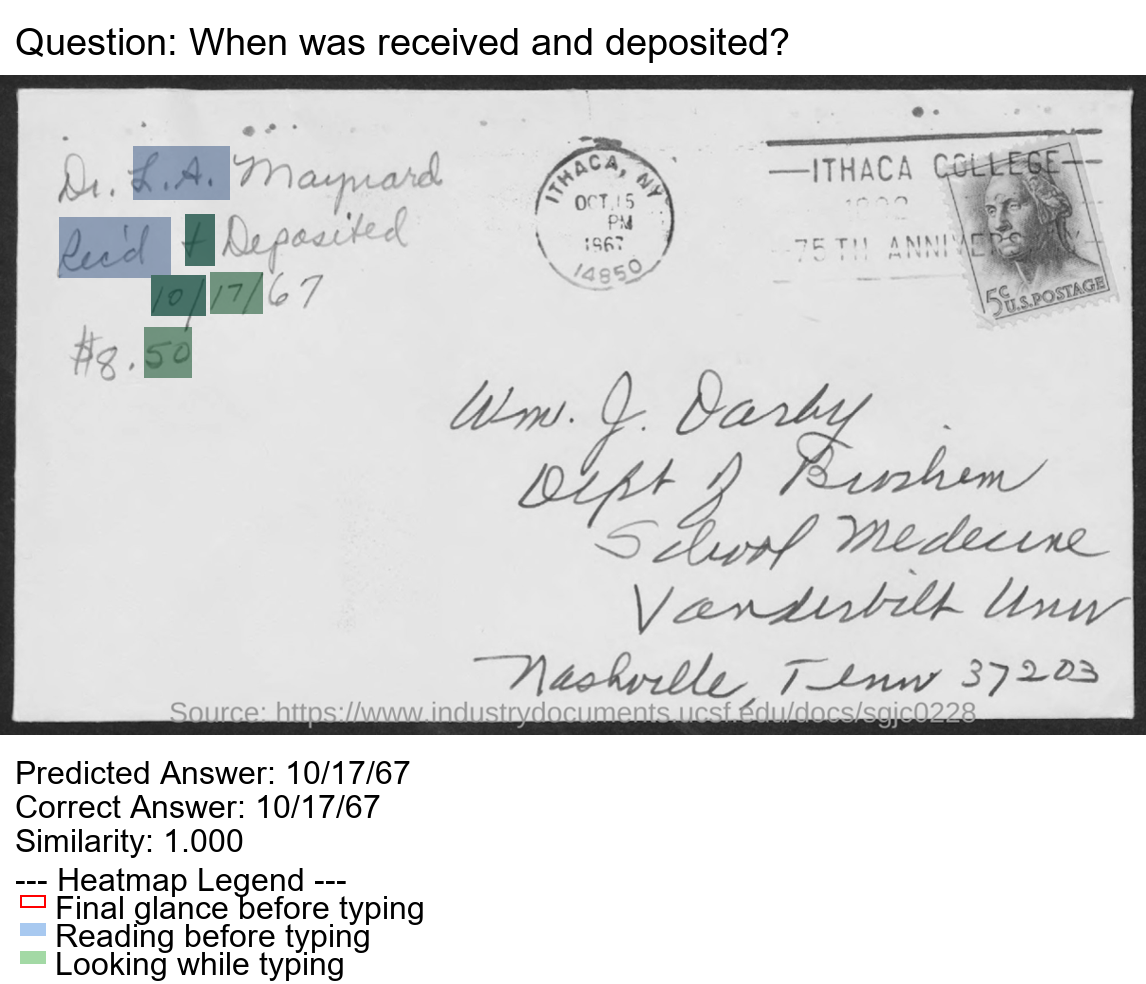 Question: When was received and deposited?
Dr. L.A. Maynard
Rec'd + Deposited
10/17/67
$8.50
ITHACA, NY
OCT 15
PM
1967
14850
ITHACA COLLEGE
75TH ANNIVERS
5¢ U.S. POSTAGE
Wm. J. Darby
Dept of Biochem
School Medecine
Vanderbilt Univ
Nashville, Tenn 37203
Source: https://www.industrydocuments.ucsf.edu/docs/sgjc0228
Predicted Answer: 10/17/67
Correct Answer: 10/17/67
Similarity: 1.000
--- Heatmap Legend ---
Final glance before typing
Reading before typing
Looking while typing